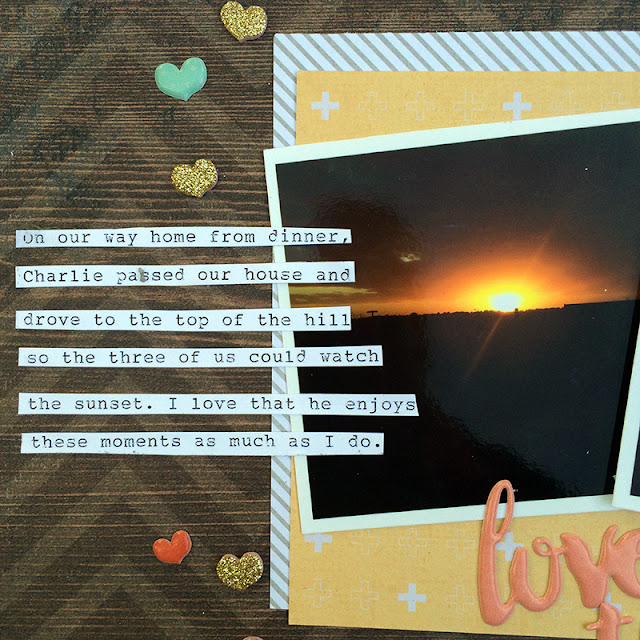 On our way home from dinner,
Charlie passed our house and
drove to the top of the hill
so the three of us could watch
the sunset. I love that he enjoys
these moments as much as I do.
love